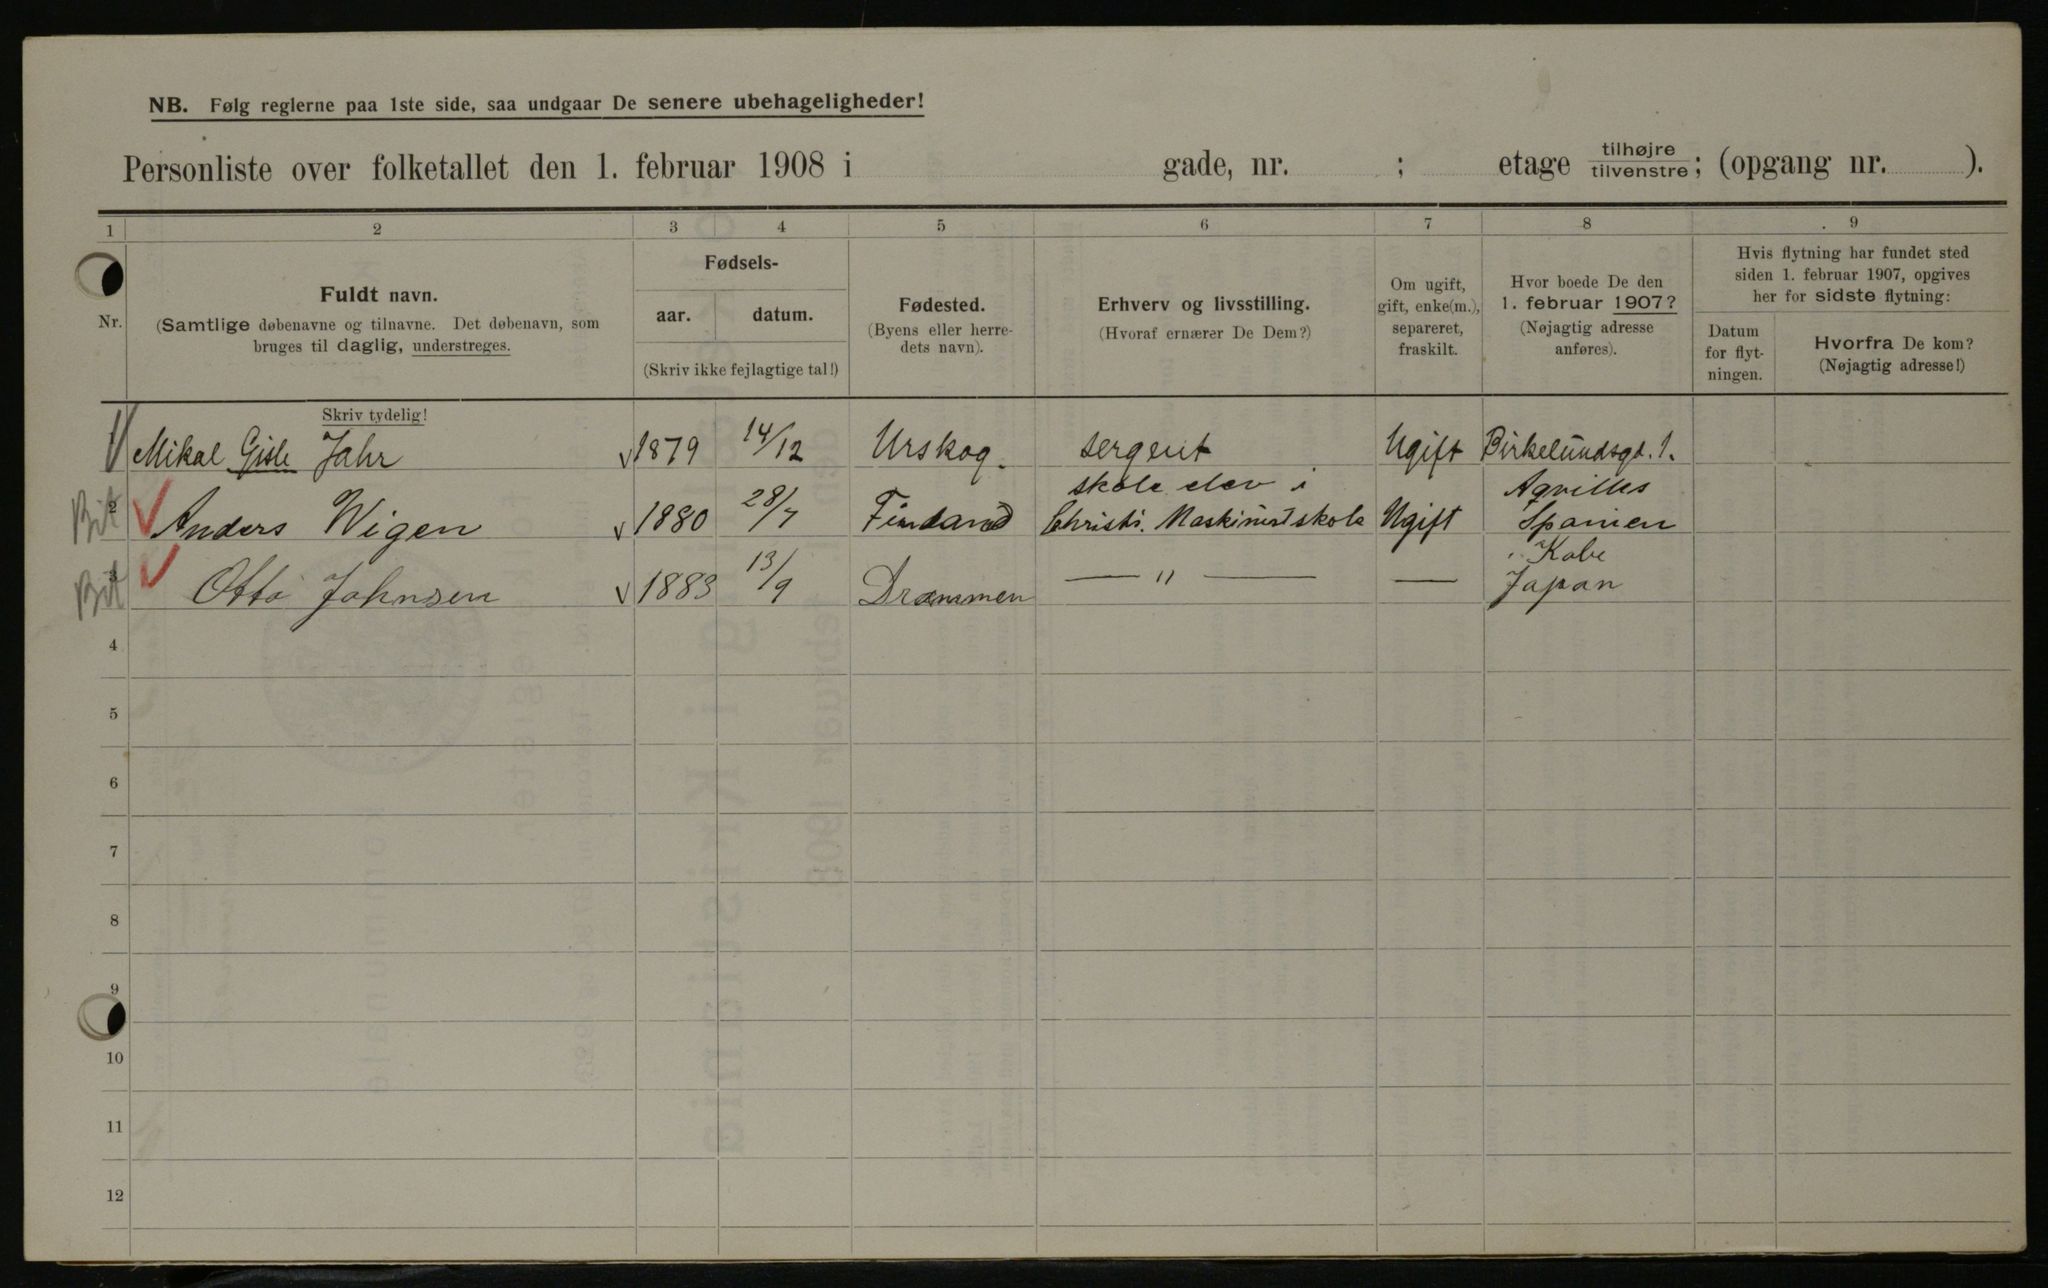 NB. Følg reglerne paa 1ste side, saa undgaar De senere ubehageligheder!
Personliste over folketallet den 1. februar 1908 i gade, nr. ; etage tilhøjre tilvenstre; (opgang nr. ).
1 2 3 4 5 6 7 8 9
Nr.
Fuldt navn.
(Samtlige døbenavne og tilnavne. Det døbenavn, som
bruges til daglig, understreges.
Skriv tydelig!
Fødsels-
aar. datum.
(Skriv ikke fejlagtige tal!)
Fødested.
(Byens eller herre-
dets navn).
Erhverv og livsstilling.
(Hvoraf ernærer De Dem?)
Om ugift,
gift, enke(m.),
separeret,
fraskilt.
Hvor boede De den
1. februar 1907?
(Nøjagtig adresse
anføres).
Hvis flytning har fundet sted
siden 1. februar 1907, opgives
her for sidste flytning:
Datum
for flyt-
ningen.
Hvorfra De kom?
(Nøjagtig adresse!)
Mikal Gisle Jahr 1879 14/12 Urskog. sergent Ugift Birkelundsgd. 1.
skole elev i Aqvilles
2 Anders Wigen 1880 28/7 Christi. Maskinistskole Ugift Spanien
Kobe
3 Otto Johnsen 1883 13/9 Drammen — " — — Japan
4
5
6
7
8
9
10
11
12